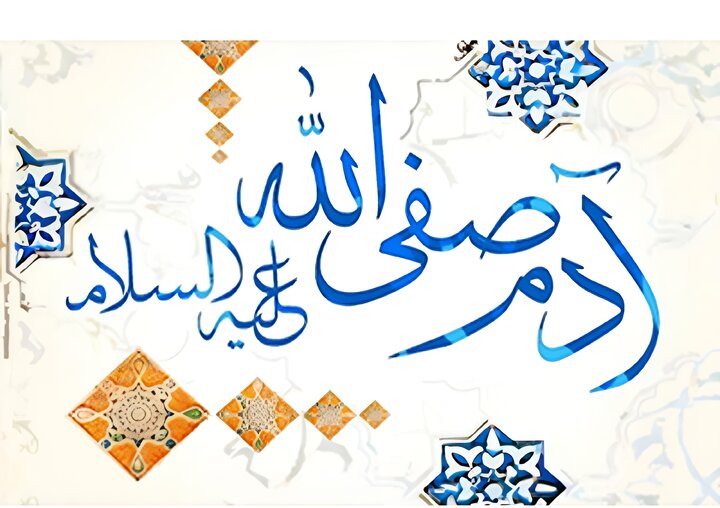 آدم صفی الله علیه السلام